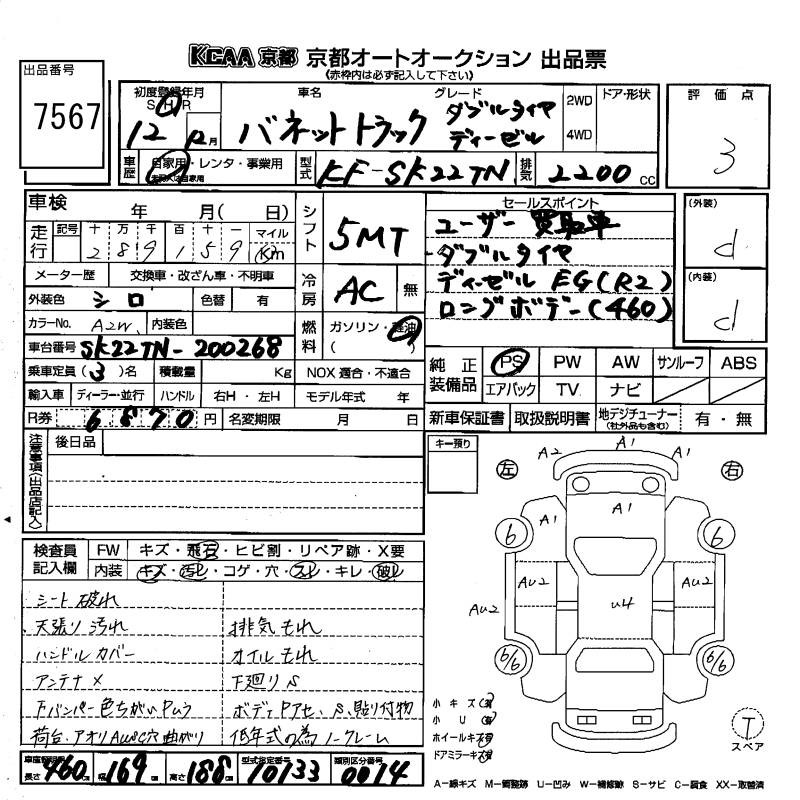 KCAA 京都 京都オートオークション 出品票
(赤枠内は必ず記入して下さい)
出品番号
7567
初度登録年月 車名 グレード 2WD ドア・形状
S H R
12 年 12月 バネットトラック ダブルタイヤ ディーゼル 4WD
車歴 自家用・レンタ・事業用 型式 KF-SK22TN 排気 2200 cc
評価点
3
(外装)
d
(内装)
d
車検 年 月(日)
走行 記号 十 万 千 百 十 一 マイル
2 8 9 1 5 9 Km
シフト 5MT
メーター歴 交換車・改ざん車・不明車
冷房 AC 無
外装色 シロ 色替 有
カラーNo. A2W 内装色
燃料 ガソリン・軽油
( )
車台番号 SK22TN-200268
乗車定員 (3)名 積載量 Kg NOX 適合・不適合
輸入車 ディーラー・並行 ハンドル 右H・左H モデル年式 年
R券 6870円 名変期限 月 日
セールスポイント
ユーザー買取車
ダブルタイヤ
ディーゼル EG(R2)
ロングボデー(460)
純正装備品 PS PW AW サンルーフ ABS
エアバック TV ナビ
新車保証書 取扱説明書 地デジチューナー(社外品も含む) 有・無
注意事項(出品店記入) 後日品
キー預り
左 右
A2 A1 A1
A1 A1
6 6
AU2 AU2 AU2
U4
6/6 6/6
検査員記入欄 FW キズ・飛石・ヒビ割・リペア跡・X要
内装 キズ・汚レ・コゲ・穴・スレ・キレ・破レ
シート破れ
天張り汚れ 排気もれ
ハンドルカバー オイルもれ
アンテナ× 下廻りS
下バンパー色ちがいPムラ ボディPアセ、S、貼り付物
荷台・アオリAUSC穴曲がり 低年式の為ノークレーム
小キズ(有)
小U(有)
ホイールキズ
ドアミラーキズ
T
スペア
車度説明書 長さ 460cm 幅 169cm 高さ 188cm 型式指定番号 10133 類別区分番号 0014
A-線キズ M-調整跡 U-凹み W-補修跡 S-サビ C-腐食 XX-取替済